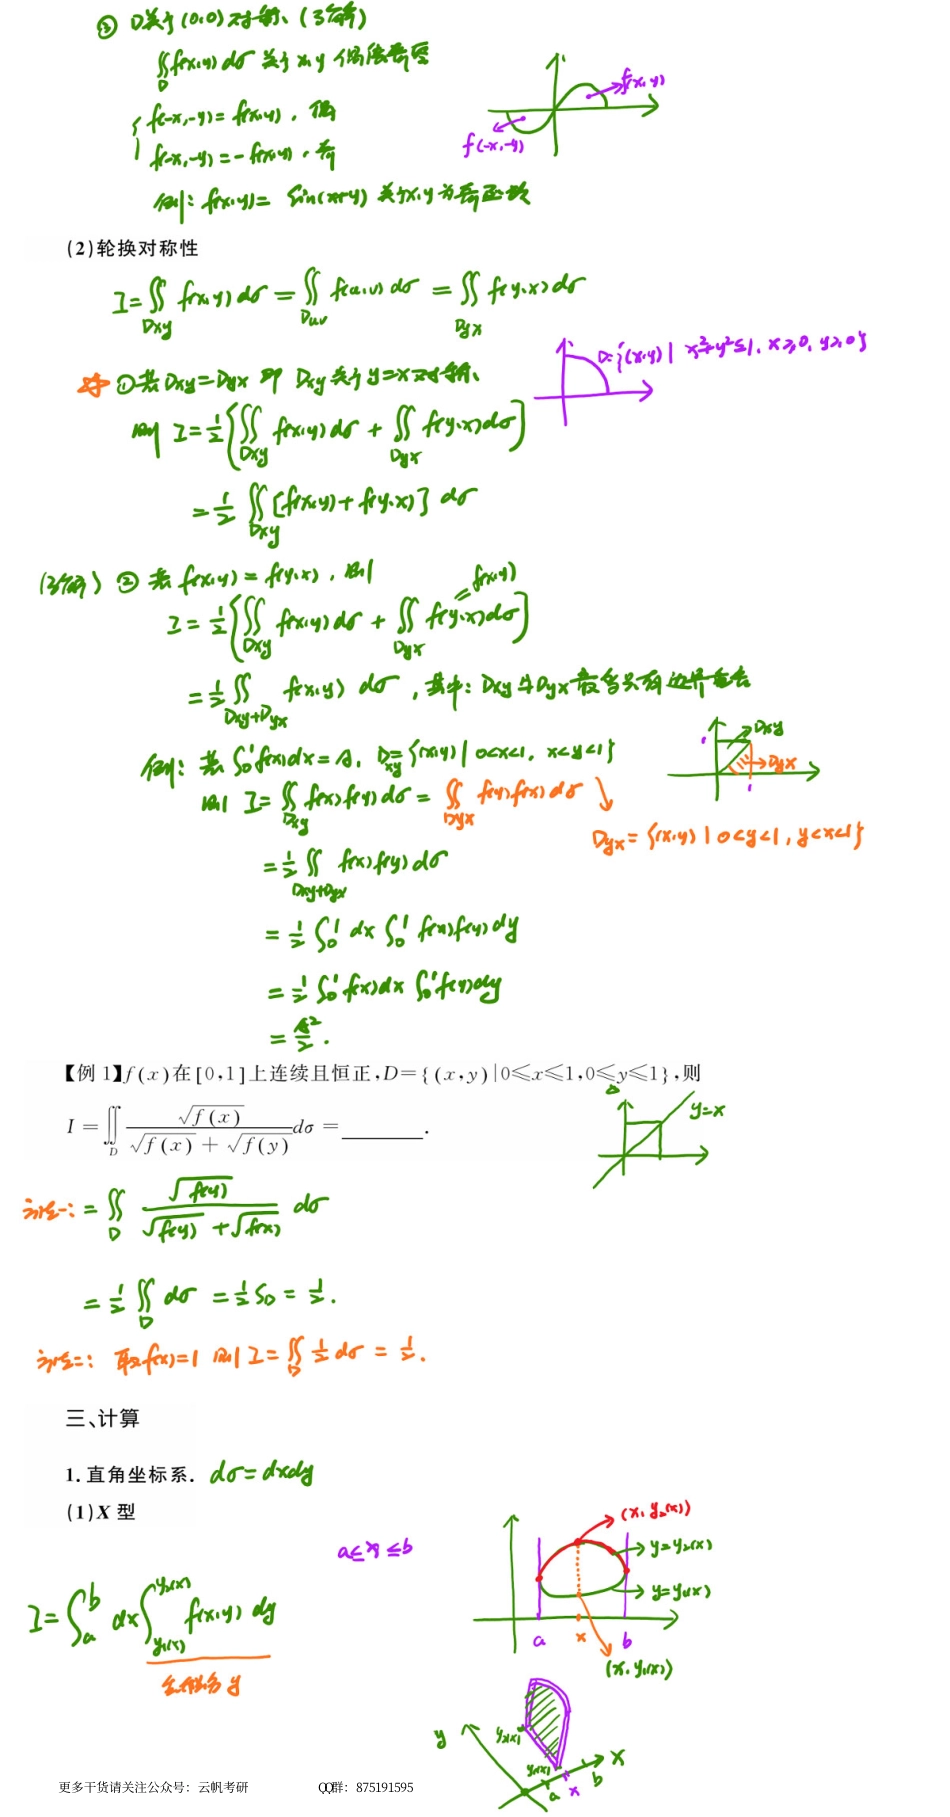 ③ D关于(0,0)对称、(了解)
∬_D f(x,y)dσ 关于x,y 偶倍奇零
{ f(-x,-y)=f(x,y),偶
f(-x,-y)=-f(x,y),奇
f(x,y)
f(-x,-y)
例: f(x,y)= sin(x+y) 关于x,y为奇函数
(2)轮换对称性
I=∬_{Dxy} f(x,y)dσ = ∬_{Duv} f(u,v)dσ = ∬_{Dyx} f(y,x)dσ
D={(x,y)| x²+y²≤1, x≥0, y≥0}
①若 Dxy=Dyx 即 Dxy 关于y=x对称、
则 I=1/2[∬_{Dxy} f(x,y)dσ + ∬_{Dyx} f(y,x)dσ]
=1/2 ∬_{Dxy} [f(x,y)+f(y,x)] dσ
(了解) ② 若 f(x,y)=f(y,x),则
=f(x,y)
I=1/2[∬_{Dxy} f(x,y)dσ + ∬_{Dyx} f(y,x)dσ]
=1/2 ∬_{Dxy+Dyx} f(x,y) dσ,其中:Dxy与Dyx最多只有边界重合
例: 若 ∫₀¹f(x)dx=A, Dxy={(x,y)| 0<x<1, x<y<1}
1 Dxy
Dyx
1
则 I=∬_{Dxy} f(x)f(y)dσ = ∬_{Dyx} f(y)f(x)dσ
Dyx={(x,y)| 0<y<1, y<x<1}
=1/2 ∬_{Dxy+Dyx} f(x)f(y)dσ
=1/2 ∫₀¹ dx ∫₀¹ f(x)f(y)dy
=1/2 ∫₀¹f(x)dx ∫₀¹f(y)dy
=A²/2.
【例 1】f(x)在[0,1]上连续且恒正,D={(x,y)|0≤x≤1,0≤y≤1},则
I=∬_D √f(x) / (√f(x)+√f(y)) dσ=________.
y=x
方法一: =∬_D √f(y) / (√f(y)+√f(x)) dσ
=1/2 ∬_D dσ =1/2 S_D = 1/2.
方法二: 取f(x)=1 则 I=∬_D 1/2 dσ = 1/2.
三、计算
1.直角坐标系. dσ=dxdy
(1)X 型
(x, y₂(x))
a≤x≤b
y=y₂(x)
y=y₁(x)
I=∫_a^b dx∫_{y₁(x)}^{y₂(x)} f(x,y) dy
a x b
(x, y₁(x))
先积y
y y₂(x)
y₁(x) x
a x b
更多干货请关注公众号：云帆考研 QQ群：875191595